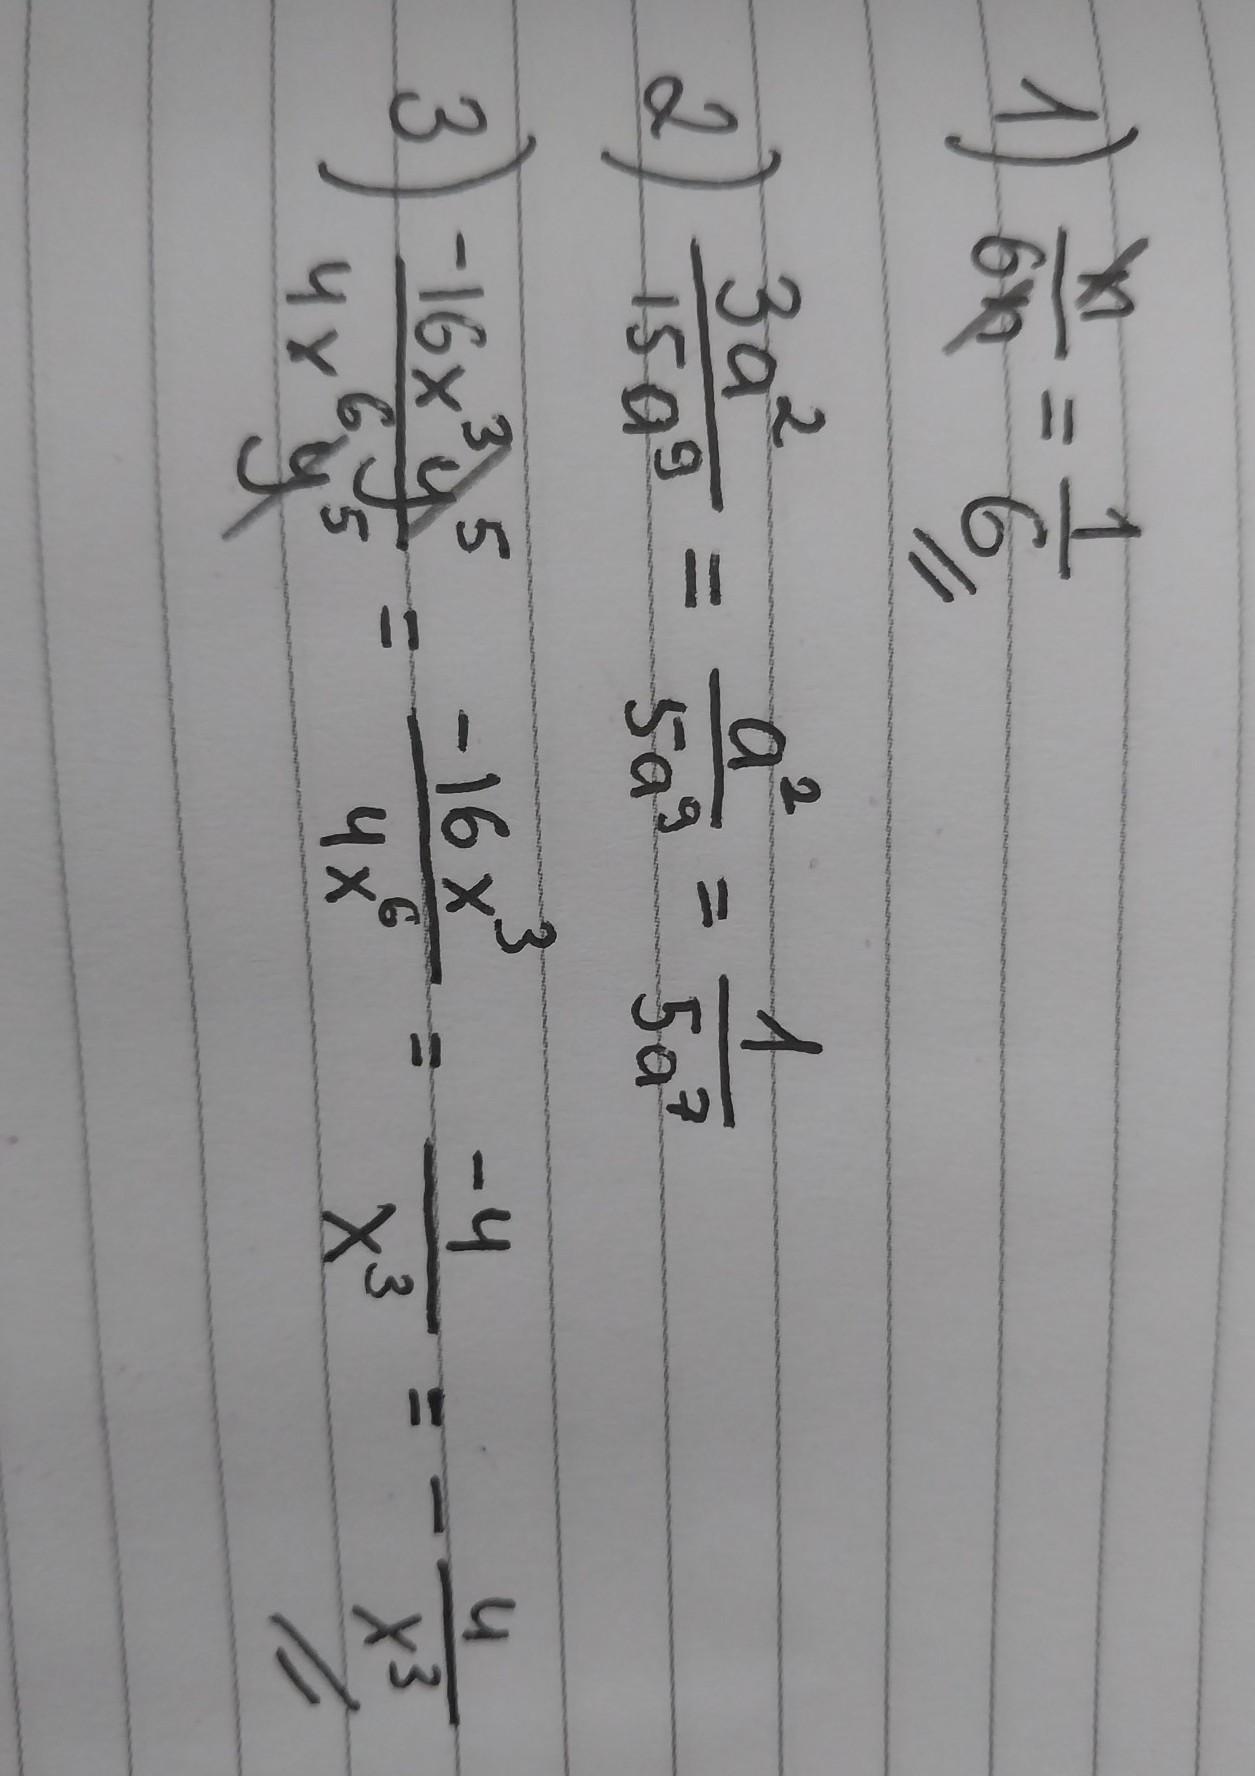 1) n/6n = 1/6
2) 3a²/15a⁹ = a²/5a⁹ = 1/5a⁷
3) -16x³y⁵/4x⁶y⁵ = -16x³/4x⁶ = -4/x³ = - 4/x³